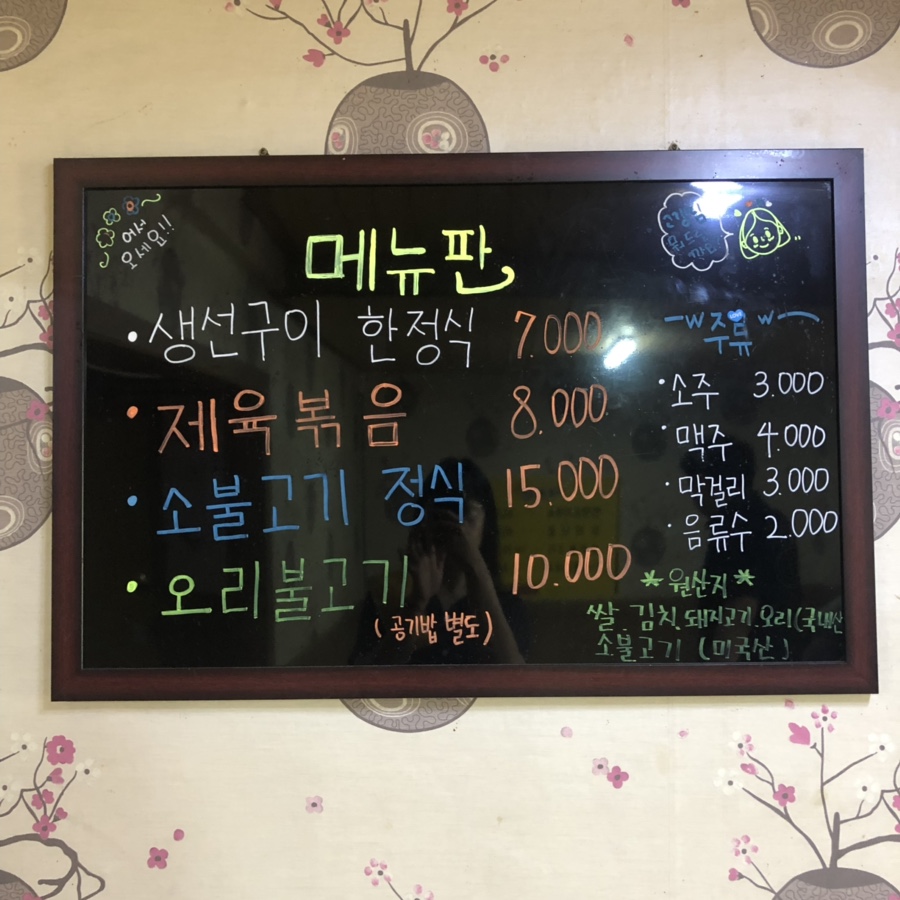 어서
오세요!!
메뉴판
·생선구이 한정식 7.000
·제육볶음 8.000
·소불고기 정식 15.000
·오리불고기 10.000
(공기밥 별도)
주류
·소주 3.000
·맥주 4.000
·막걸리 3.000
·음류수 2.000
*원산지*
쌀.김치.돼지고기.오리(국내산
소불고기 (미국산)